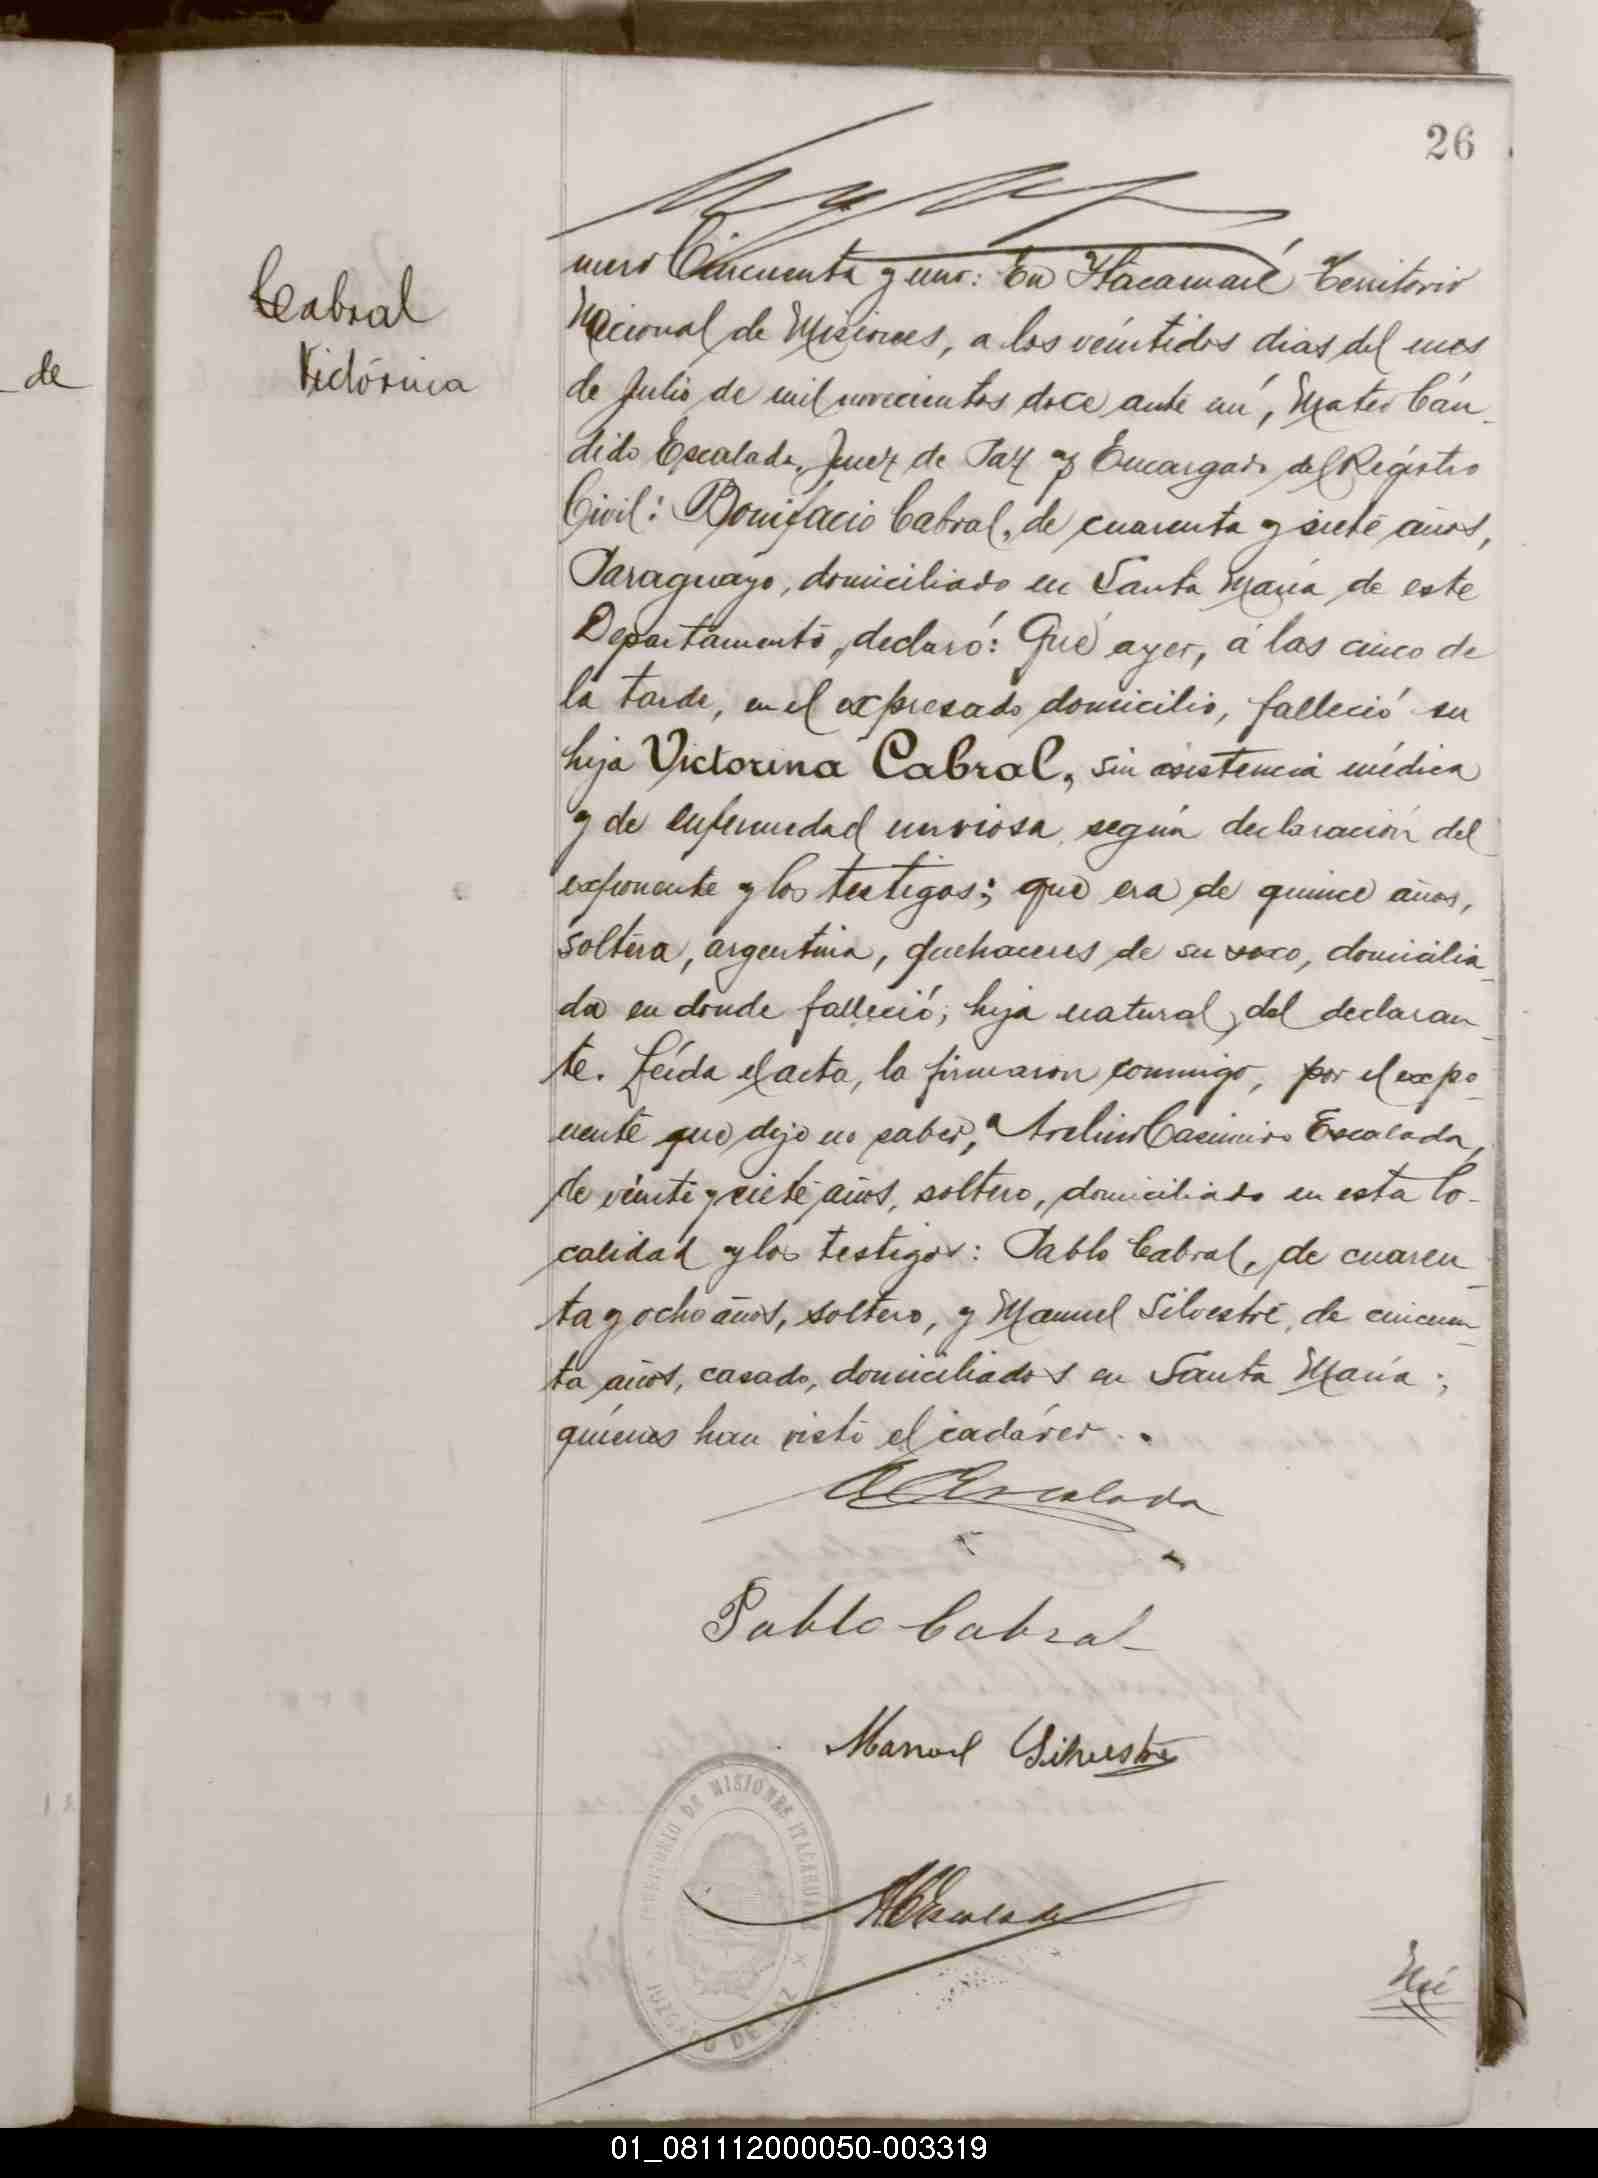 26
Cabral
Victórina
de
mero Cincuenta y uno: En Itacaruaré Territorio
Nacional de Misiones, a los veintidos dias del mes
de Julio de mil novecientos doce ante mí, Mateo Cán-
dido Escalada, Juez de Paz y Encargado del Registro
Civil: Bonifacio Cabral, de cuarenta y siete años,
Paraguayo, domiciliado en Santa María de este
Departamento, declaró: Que ayer, á las cinco de
la tarde, en el expresado domicilio, falleció su
hija Victorina Cabral, sin asistencia médica
y de enfermedad nerviosa, según declaración del
exponente y los testigos; que era de quince años,
soltera, argentina, quehaceres de su sexo, domicilia-
da en donde falleció; hija natural, del declaran-
te. Leída el acta, la firmaron conmigo, por el expo-
nente que dijo no saber, Casimiro Escalada,
de veinte y siete años, soltero, domiciliado en esta lo-
calidad y los testigos: Pablo Cabral, de cuaren-
ta y ocho años, soltero, y Manuel Silvestre, de cincuen-
ta años, casado, domiciliados en Santa María;
quienes han visto el cadáver.
Escalada
Pablo Cabral
Manuel Silvestre
TERRITORIO DE MISIONES ITACARUARE
JUZGADO DE PAZ
MCEscalada
Nú
01_081112000050-003319